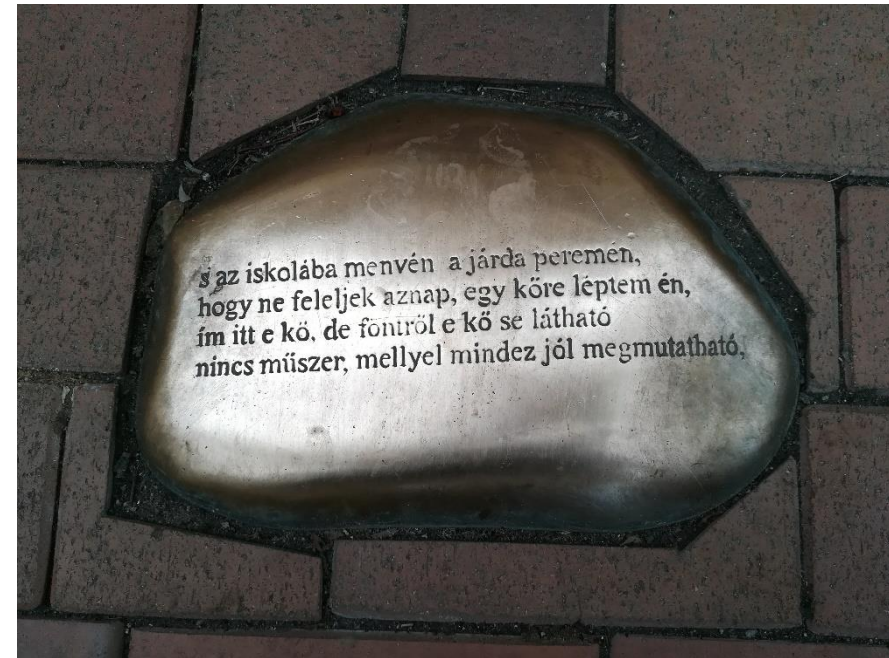 s az iskolába menvén a járda peremén,
hogy ne feleljek aznap, egy kőre léptem én,
ím itt e kő. de föntről e kő se látható
nincs műszer, mellyel mindez jól megmutatható,